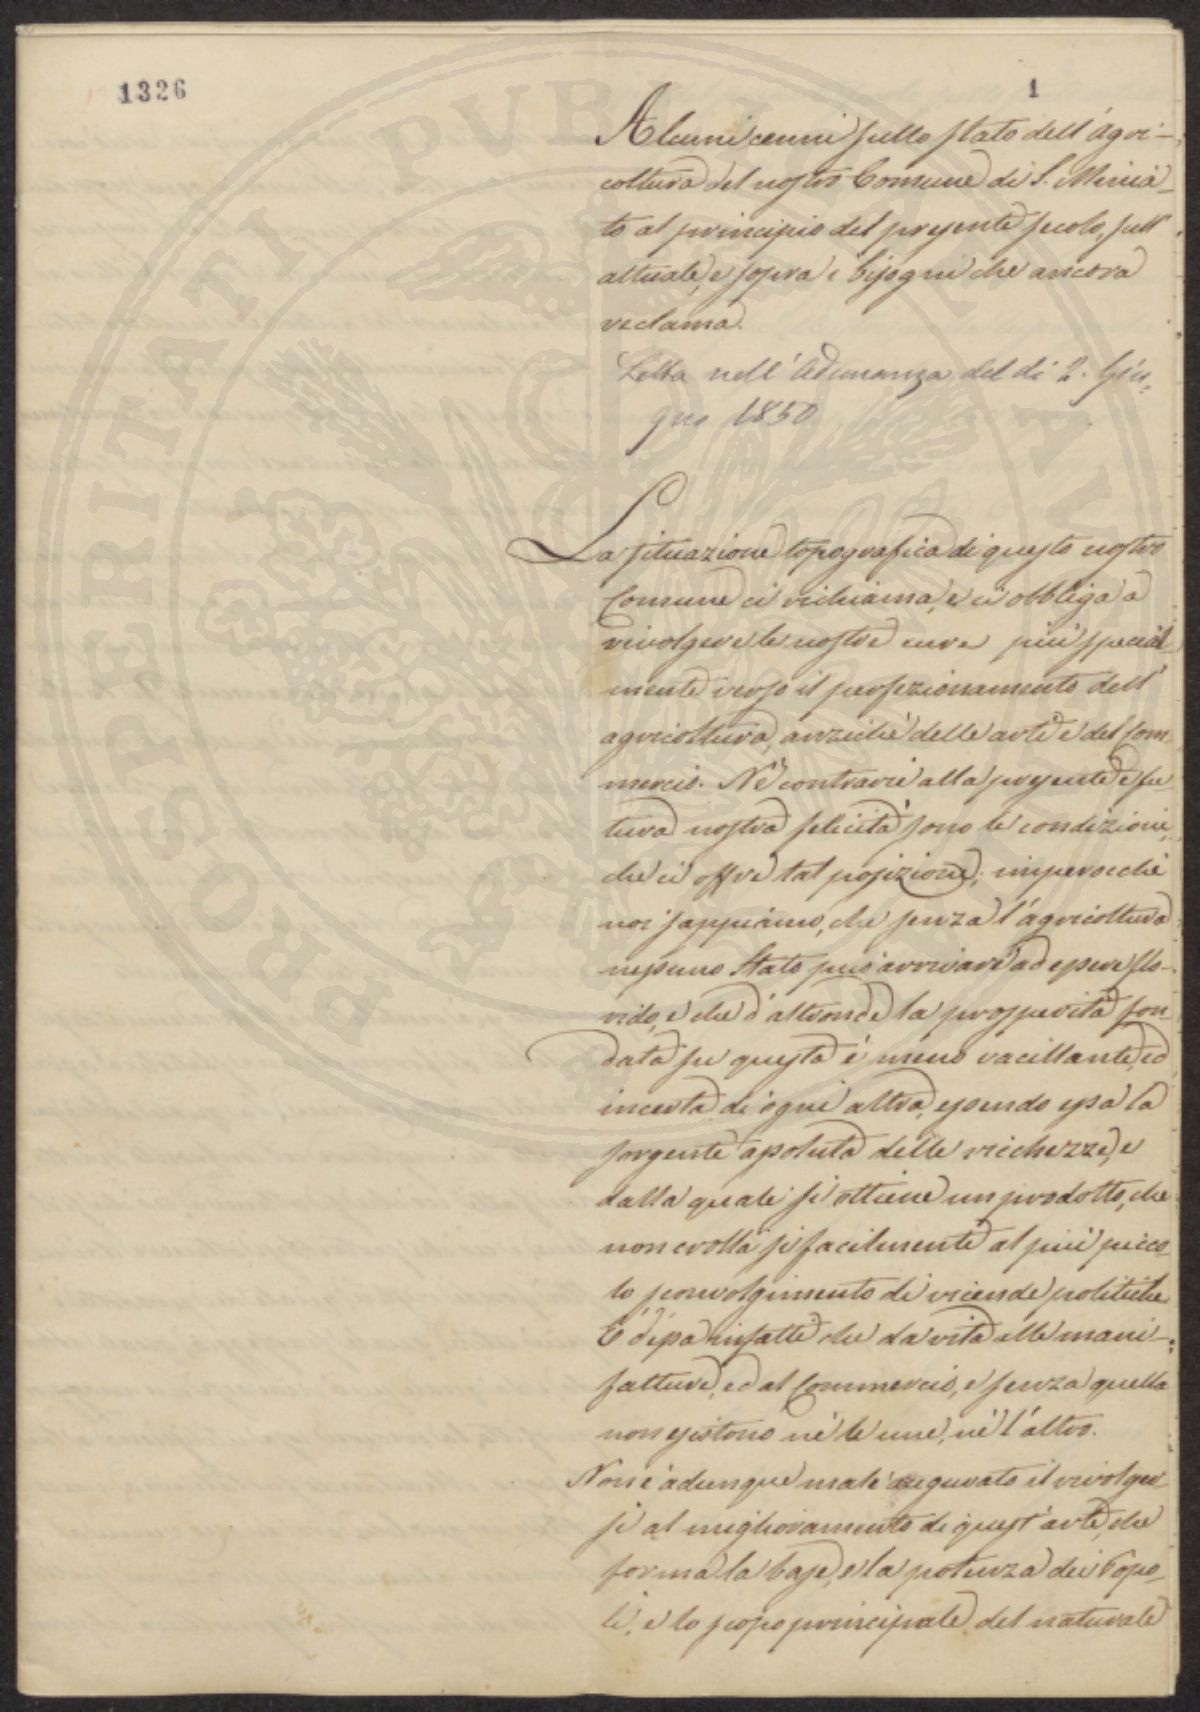 1326
1
Alcuni cenni sullo stato dell'agri-
coltura del nostro Comune di S. Minia-
to al principio del presente secolo, sull'
attuale, e sopra i bisogni che ancora
reclama.
Letta nell'Adunanza del dì 2. Giu-
gno 1850
La situazione topografica di questo nostro
Comune ci richiama, e ci obbliga a
rivolgere le nostre cure più special-
mente verso il perfezionamento dell'
agricoltura, anziché delle arti e del Com-
mercio. Né contrarie alla presente e fu-
tura nostra felicità sono le condizioni,
che ci offre tal posizione; imperocché
noi sappiamo, che senza l'agricoltura
nessuno Stato può arrivare ad essere flo-
rido, e che d'altronde la prosperità fon-
data su questa è meno vacillante, ed
incerta di ogni altra, essendo essa la
sorgente assoluta delle ricchezze, e
dalla quale si ottiene un prodotto, che
non crolla sì facilmente al più picco-
lo sconvolgimento di vicende politiche
E' dessa infatti che da vita alle mani-
fatture, ed al Commercio, e senza quella
non esistono né le une, né l'altro.
Non è adunque male augurato il rivolger-
si al miglioramento di quest'arte, che
forma la base, e la potenza dei Popo-
li, e lo scopo principale del naturale
PROSPERITATI PUBLICAE AU